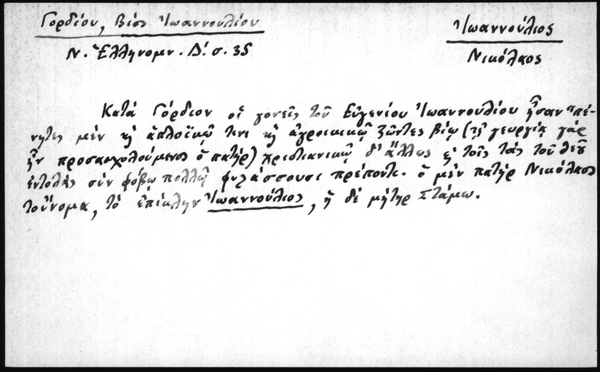 Γορδίου, Βίος Ἰωαννουλίου
Ν. Ἑλληνομν. Δ΄. σ. 35
Ἰωαννούλιος
Νικόλαος
Κατὰ Γόρδιον οἱ γονεῖς τοῦ Εὐγενίου Ἰωαννουλίου ἦσαν "πέ-
νητες μὲν κ̀ ἁπλοϊκῷ τινι κ̀ ἀγροικικῷ ζῶντες βίῳ (τῇ γεωργίᾳ γὰρ
ἦν προσασχολούμενος ὁ πατήρ) χριστιανικῷ δ' ἄλλως κ̀ τοῖς τὰς τοῦ Θεοῦ
ἐντολὰς σὺν φόβῳ πολλῷ φυλάσσουσι πρέποντι. ὁ μὲν πατὴρ Νικόλαος
τοὔνομα, τὸ ἐπίκλην Ἰωαννούλιος, ἡ δὲ μήτηρ Στάμω.